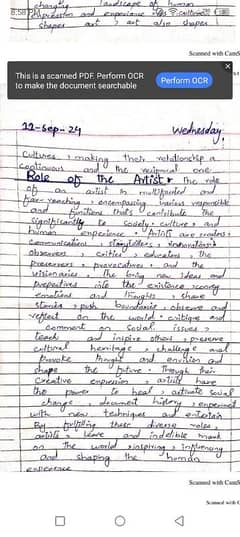 changing landscape of human
expression and experience
shapes art, art also shapes
Scanned with CamS
This is a scanned PDF. Perform OCR
to make the document searchable
Perform OCR
12-Sep-24 Wednesday
Cultures, making their relationship a
continuous and the reciprocal one.
Role of the Artist: The role
of an artist is multifaceted and
far-reaching, encompassing various responsible
and functions that's contribute the
significantly to society, culture, and
human experience. Artists are creators,
communicators, storytellers, innovators
observers, critics, educators, the
preservers, provocateurs, and the
visionaries. The bring new ideas and
prespectives into the existence, convey
emotions and thoughts, share
stories, push boundaries, observe and
reflect on the world, critique and
comment on social issues,
teach and inspire others, preserve
cultural heritage, challenge and
provoke thought and envision and
shape the future. Through their
creative expression, artists have
the power to heal, activate social
change, document history, experiment
with new techniques and entertain
By fulfiling these diverse roles,
artists leave and indelible mark
on the world, inspiring, influencing
and shaping the human
experience
Scanned with CamS
Scanned with C